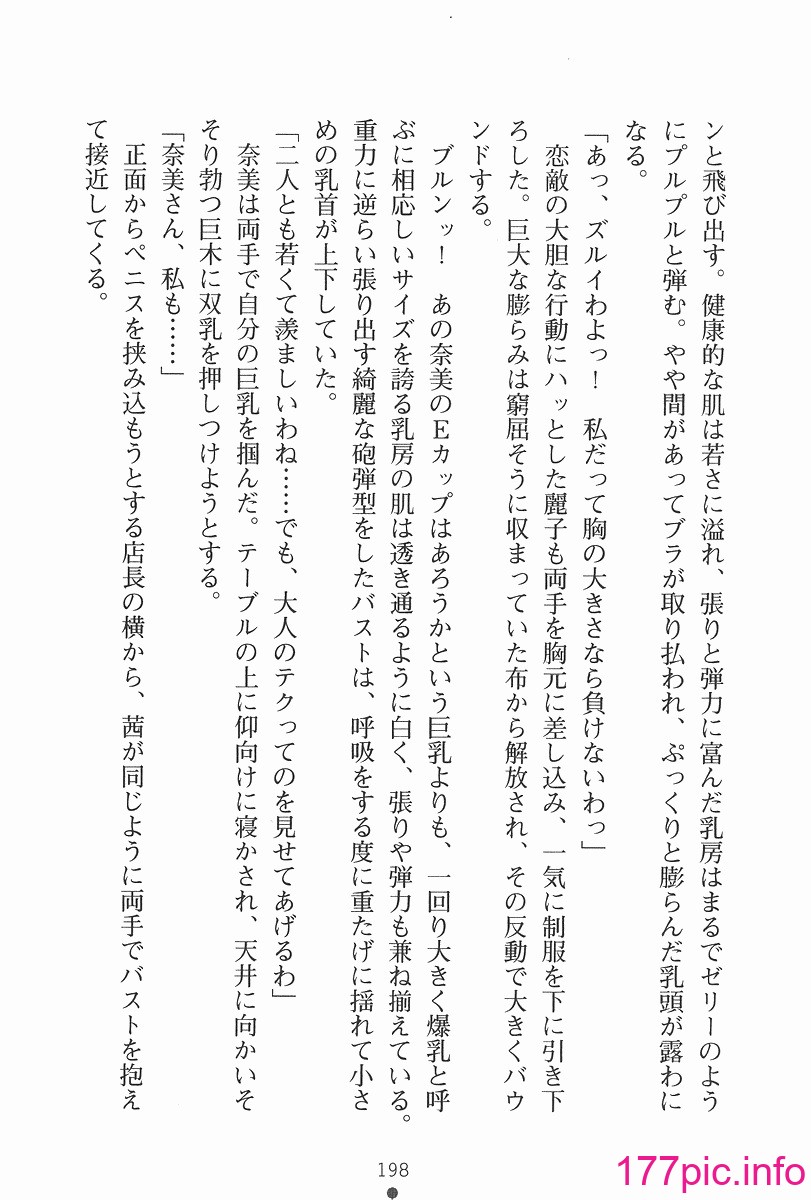 ンと飛び出す。健康的な肌は若さに溢れ、張りと弾力に富んだ乳房はまるでゼリーのよう
にプルプルと弾む。やや間があってブラが取り払われ、ぷっくりと膨らんだ乳頭が露わに
なる。
「あっ、ズルイわよっ！　私だって胸の大きさなら負けないわっ」
　恋敵の大胆な行動にハッとした麗子も両手を胸元に差し込み、一気に制服を下に引き下
ろした。巨大な膨らみは窮屈そうに収まっていた布から解放され、その反動で大きくバウ
ンドする。
　ブルンッ！　あの奈美のＥカップはあろうかという巨乳よりも、一回り大きく爆乳と呼
ぶに相応しいサイズを誇る乳房の肌は透き通るように白く、張りや弾力も兼ね揃えている。
重力に逆らい張り出す綺麗な砲弾型をしたバストは、呼吸をする度に重たげに揺れて小さ
めの乳首が上下していた。
「二人とも若くて羨ましいわね……でも、大人のテクってのを見せてあげるわ」
　奈美は両手で自分の巨乳を掴んだ。テーブルの上に仰向けに寝かされ、天井に向かいそ
そり勃つ巨木に双乳を押しつけようとする。
「奈美さん、私も……」
　正面からペニスを挟み込もうとする店長の横から、茜が同じように両手でバストを抱え
て接近してくる。
198
177pic.info